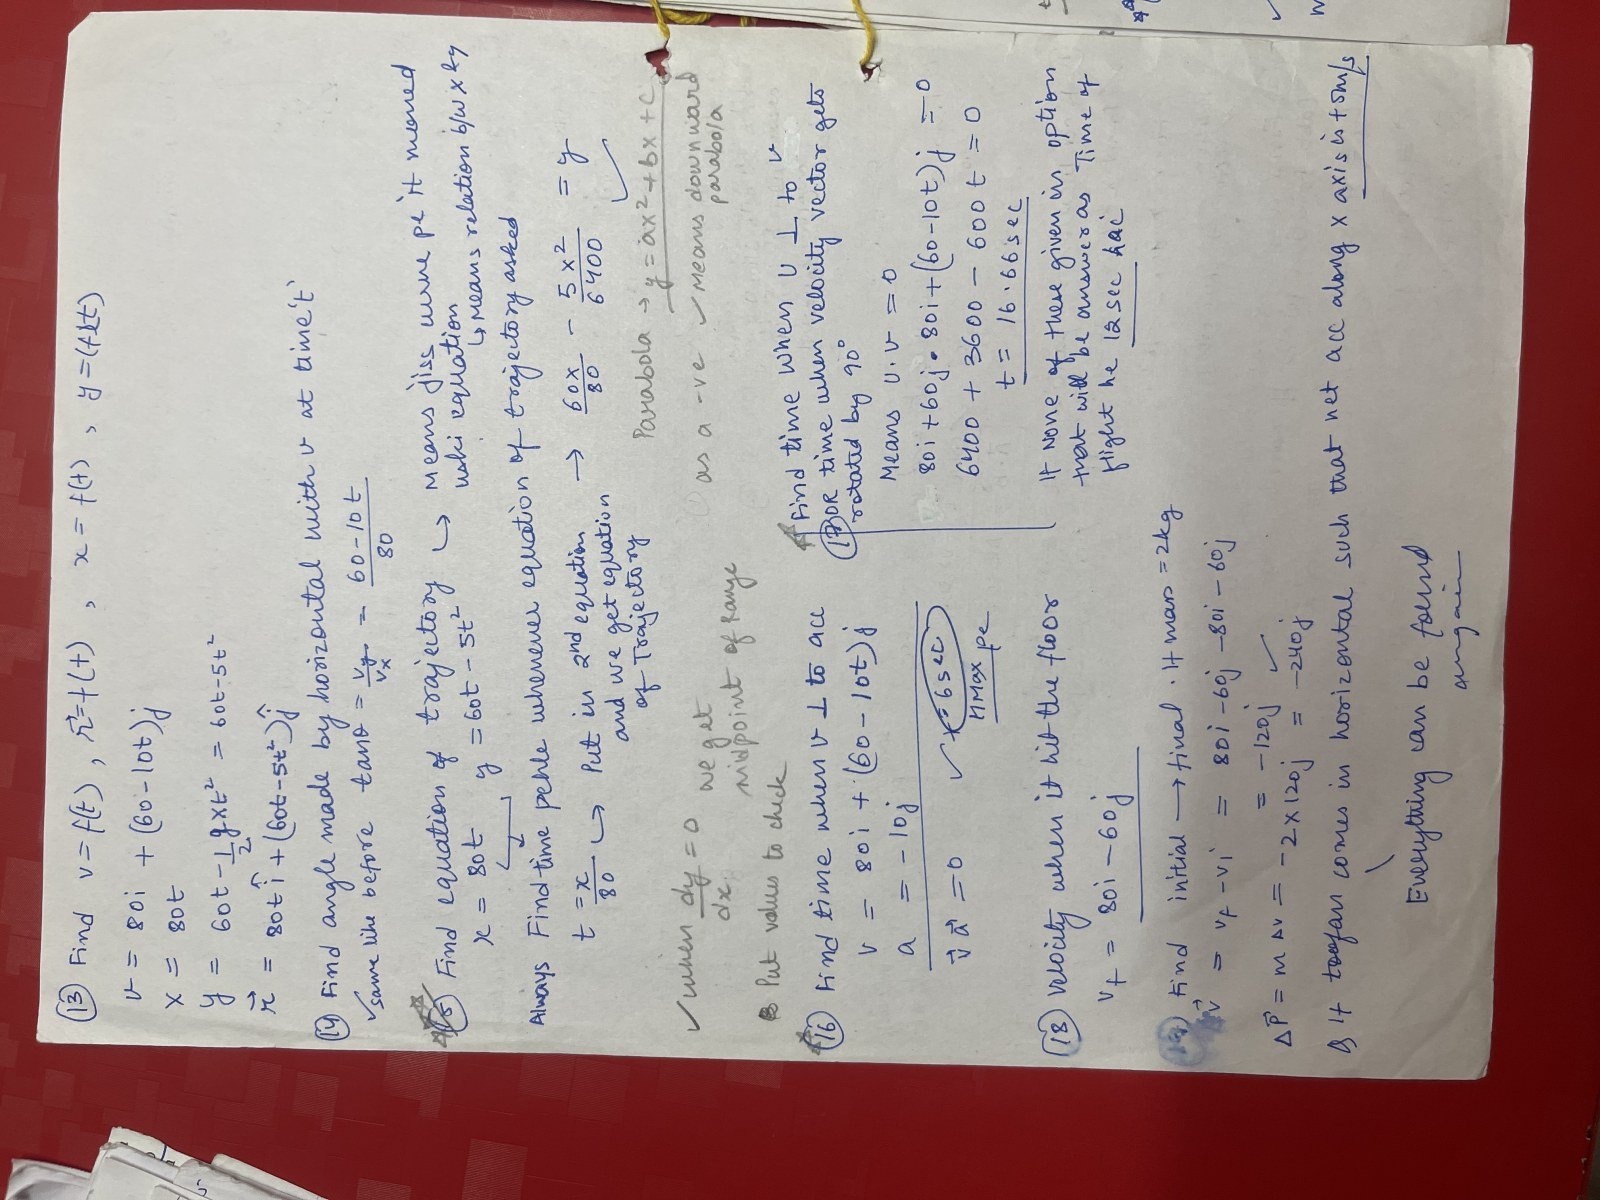 (13) Find v = f(t), r⃗ = f(t), x = f(t), y = (ft)
v = 80i + (60-10t)j
x = 80t
y = 60t - 1/2 g x t² = 60t-5t²
r⃗ = 80t î + (60t-5t²) ĵ
(14) Find angle made by horizontal with v at time 't'
✓ same like before tanθ = vy/vx = 60-10t/80
(15) Find equation of trajectory ↳ Means jiss curve pe it moved
uski equation
↳ Means relation b/w x & y
x = 80t y = 60t - 5t²
Always Find time pehle whenever equation of trajectory asked
t = x/80 ↳ Put in 2nd equation → 60x/80 - 5x²/6400 = y ✓
and we get equation
of Trajectory
Parabola → y = ax² + bx + c
✓ when dy/dx = 0 we get
midpoint of Range
as a -ve ✓ Means downward
parabola
Put values to check
(16) Find time when v ⊥ to acc
v = 80i + (60-10t)j
a = -10j
v⃗.a⃗ = 0 ✓ t = 6 sec
HMax pe
(17) Find time when U ⊥ to v
OR time when velocity vector gets
rotated by 90°
Means U.v = 0
80i + 60j • 80i + (60-10t)j = 0
6400 + 3600 - 600t = 0
t = 16.66 sec
If None of these given in option
that will be answer as Time of
flight he 12 sec hai
(18) Velocity when it hit the floor
vf = 80i - 60j
(19) Find initial → final. If mass = 2kg
Δv⃗ = vf - vi = 80i - 60j - 80i - 60j
= -120j ✓
ΔP⃗ = m Δv = -2 x 120j = -240j
Q If toofan comes in horizontal such that net acc along x axis is +5m/s
Everything can be found